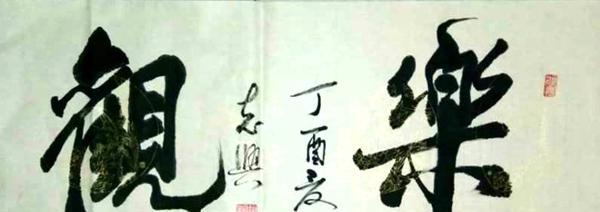 樂
觀
丁酉夏
志興